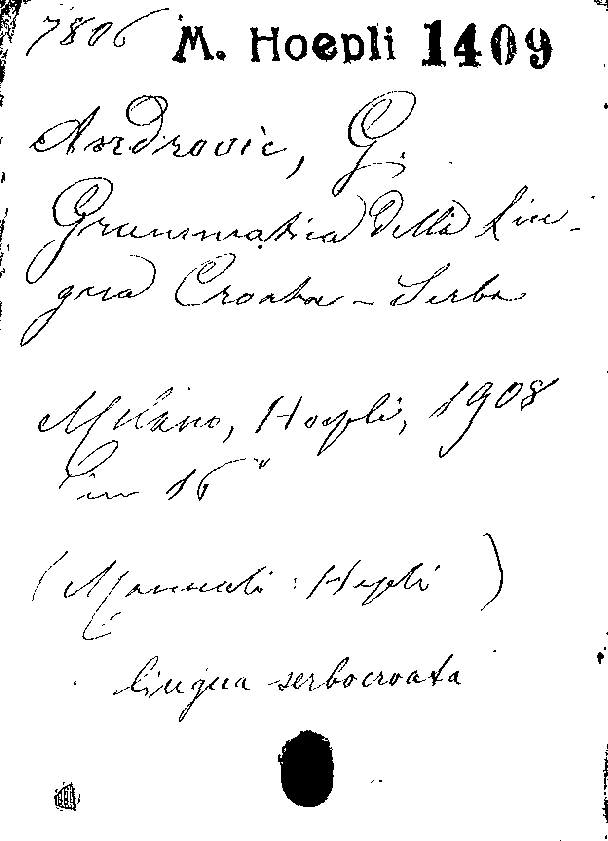 7806 M. Hoepli 1409
Androvic, G.
Grammatica della Lin-
gua Croata - Serba
Milano, Hoepli, 1908
in 16°
(Manuali Hoepli)
lingua serbocroata